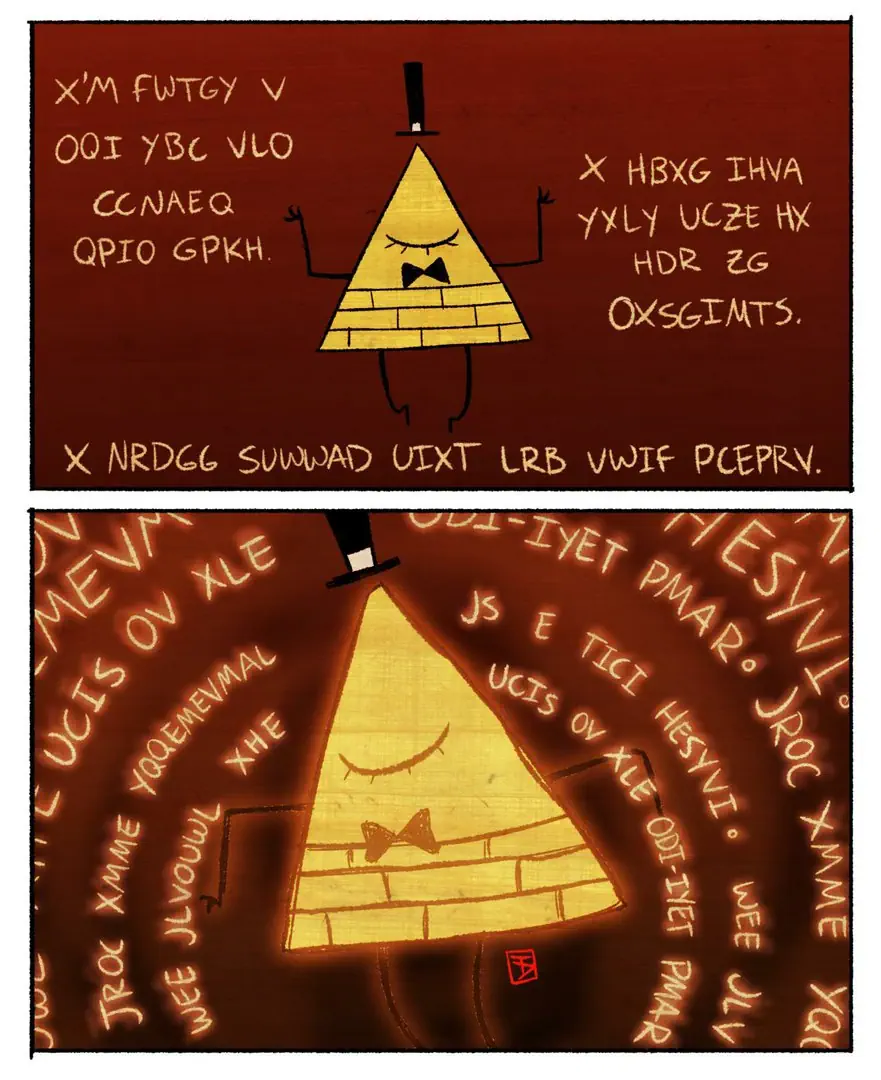 X'M FWTGY V
OQI YBC VLO
CCNAEQ
QPIO GPKH.
X HBXG IHVA
YXLY UCZE HX
HDR ZG
OXSGIMTS.
X NRDGG SUWWAD UIXT LRB VWIF PCEPRV.
MEVM
UCIS OV XLE
JROC XMME YQQEMEVMAL
WEE JLVOUWL XHE
JS E TICI HESYVI. WEE JLV
UCIS OV XLE ODI-IYET PMAR
ODI-IYET PMAR. JROC XMME YQ
HESYVI.